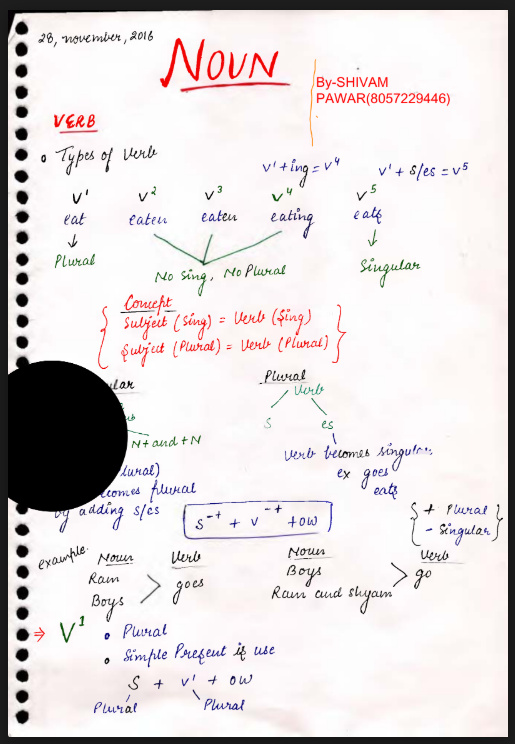 28, november, 2016
NOUN
By-SHIVAM
PAWAR(8057229446)
VERB
Types of Verb
V¹+ing = V⁴
V¹ + s/es = V⁵
V¹ V² V³ V⁴ V⁵
eat eaten eaten eating eats
Plural
No Sing, No Plural
Singular
Concept
Subject (Sing) = Verb (Sing)
Subject (Plural) = Verb (Plural)
Plural
Verb
N+and+N
s es
Verb becomes singular
ex goes
eats
by adding s/es
S⁻⁺ + V⁻⁺ + OW
+ Plural
- Singular
example.
Noun Verb Noun Verb
Ram Boys
goes go
Boys Ram and Shyam
⇒ V¹
Plural
Simple Present is use
S + V¹ + OW
Plural Plural